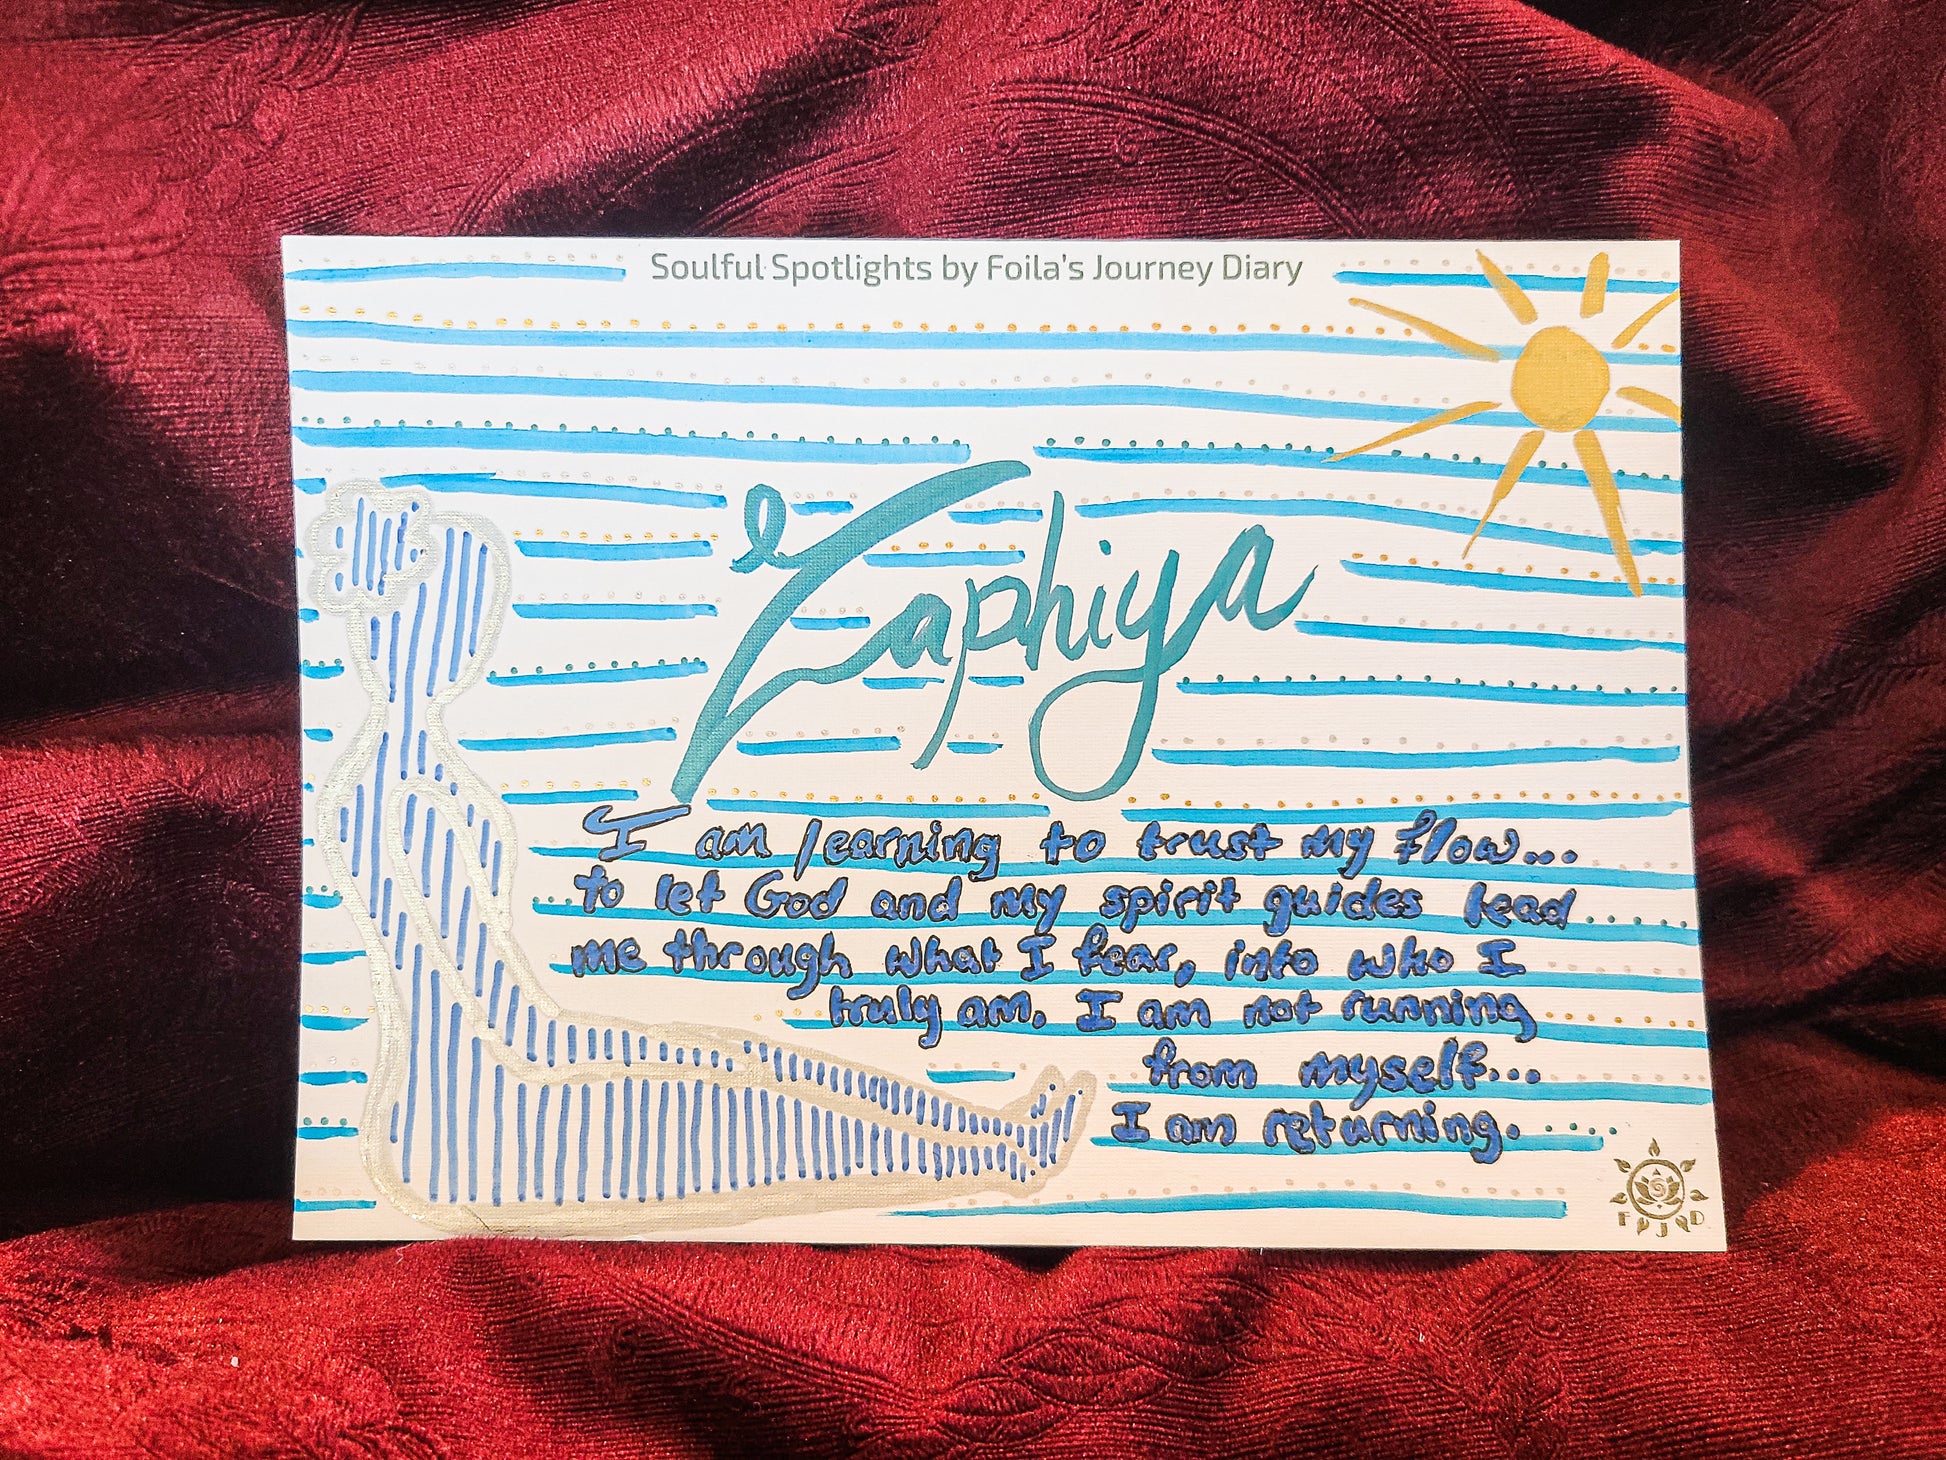 Soulful Spotlights by Foila's Journey Diary
Zaphiya
I am learning to trust my flow...
to let God and my spirit guides lead
me through what I fear, into who I
truly am. I am not running
from myself...
I am returning.
FDJRD